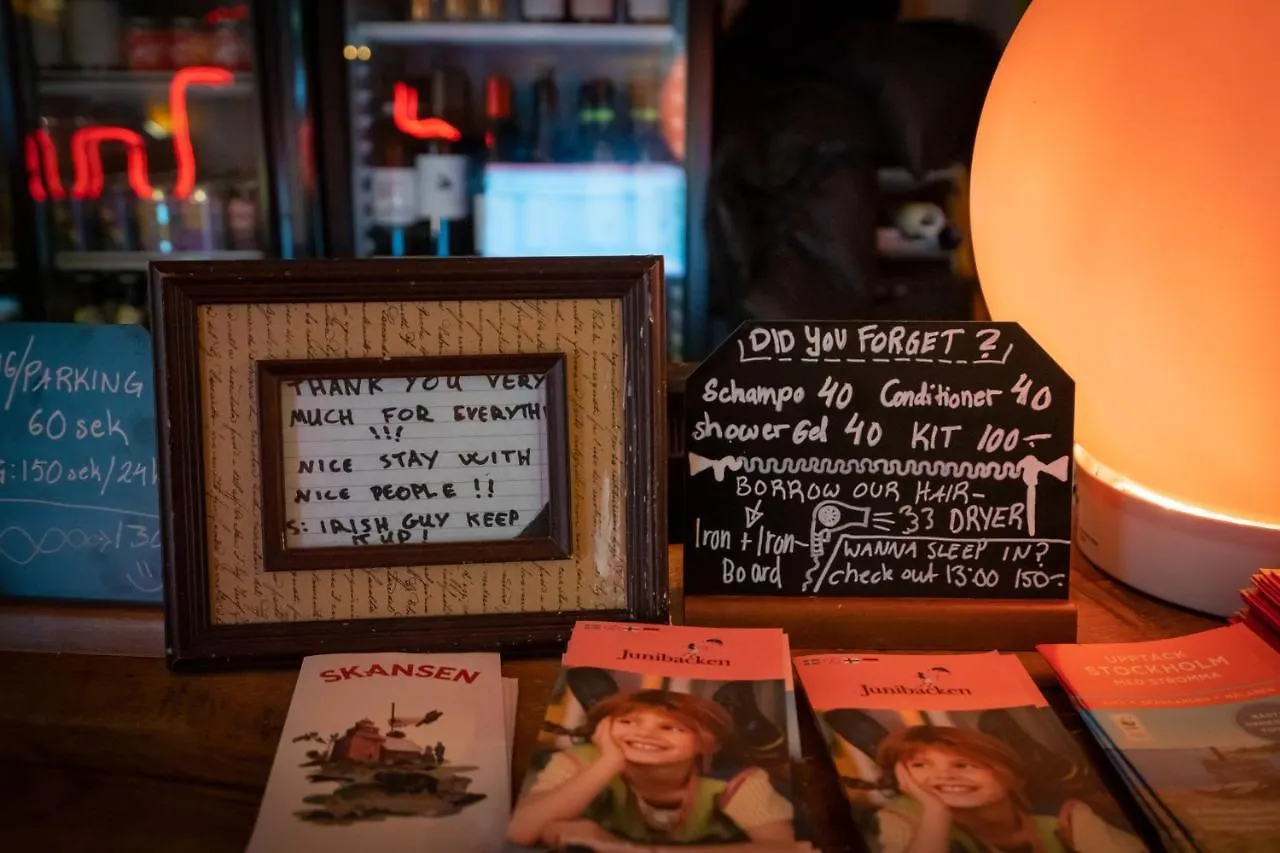 /PARKING
60 sek
: 150 sek/24
THANK YOU VERY
MUCH FOR EVERYTH
!!!
NICE STAY WITH
NICE PEOPLE !!
S: IRISH GUY KEEP
IT UP!
DID YOU FORGET ?
Schampo 40 Conditioner 40
shower Gel 40 KIT 100:-
BORROW OUR HAIR-
DRYER
Iron + Iron-
Board
WANNA SLEEP IN?
check out 13:00 150:-
SKANSEN
Junibacken
Junibacken
UPPTÄCK
STOCKHOLM
MED STROMMA